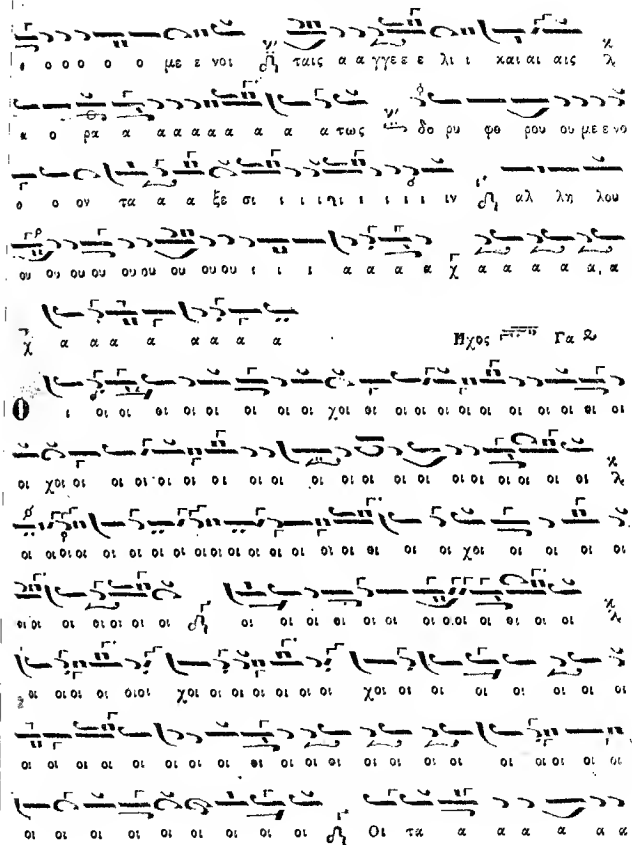 ι ο ο ο ο ο με ε νοι ταις α α γγε ε ε λι ι και αι αις
κ ο ρα α α α α α α α α α τως δο ρυ φο ρου ου με ε νο
ο ο ον τα α α ξε σι ι ι ι ι ι ι ι ιν αλ λη λου
ου ου ου ου ου ου ου ου ου ι ι ι α α α α χ α α α α α α
χ α α α α α α α α Ηχος Γα
Ο ι οι οι οι οι οι οι οι χοι οι οι οι οι οι οι οι οι οι οι οι
οι χοι οι οι οι οι οι οι οι οι οι οι οι οι οι οι οι οι οι
οι οι οι οι οι οι οι οι οι οι οι οι οι οι οι οι οι οι χοι οι οι οι οι
οι οι οι οι οι οι οι οι οι οι οι οι οι οι οι οι οι οι οι
οι οι οι οι οι οι χοι οι οι οι οι οι οι οι χοι οι οι οι οι οι οι οι
οι οι οι οι οι οι οι οι οι οι οι οι οι οι οι οι οι οι οι οι οι
οι οι οι οι οι οι οι οι οι οι Οι τα α α α α α α